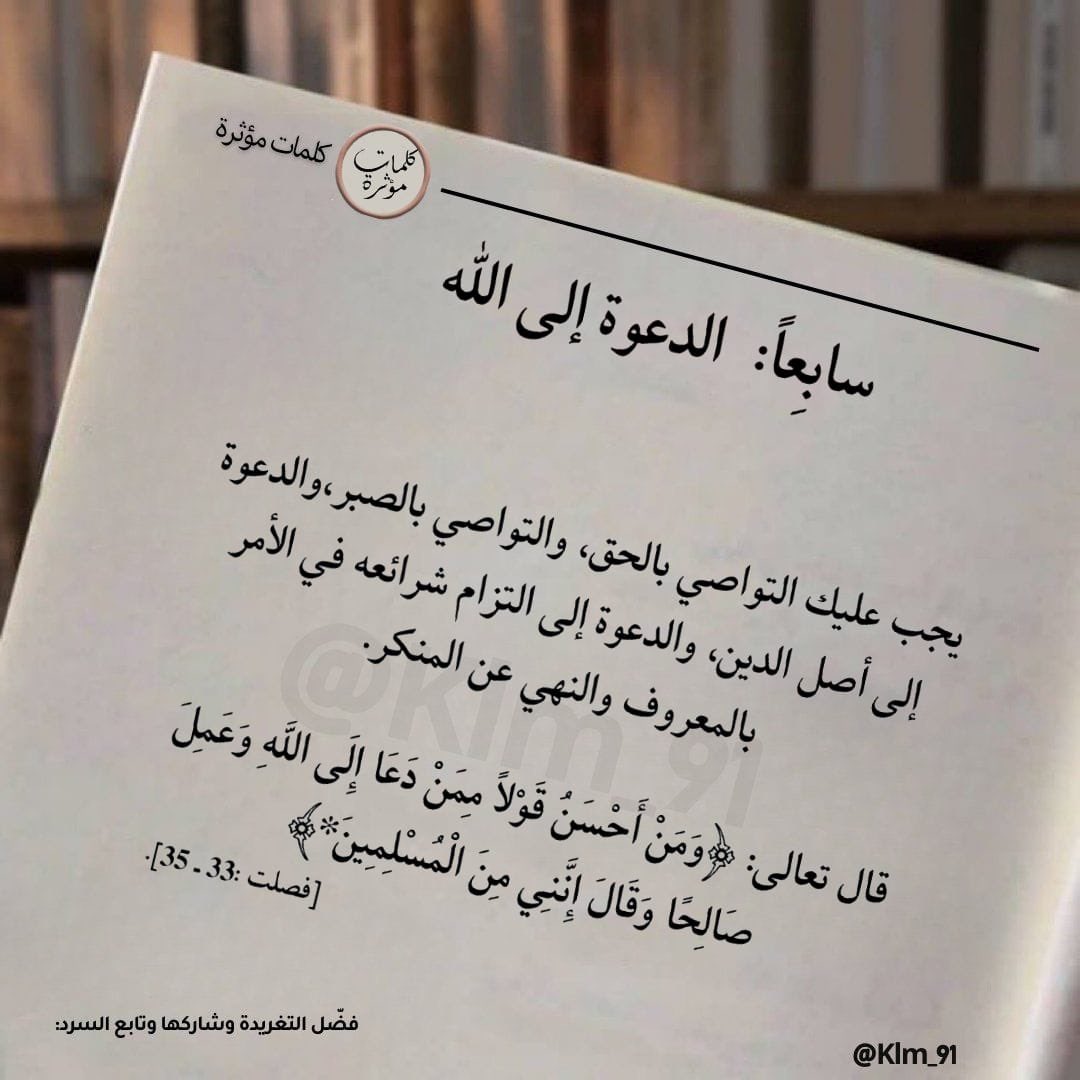 كلمات مؤثرة
كلمات
مؤثرة
سابِعاً: الدعوة إلى الله
يجب عليك التواصي بالحق، والتواصي بالصبر،والدعوة
إلى أصل الدين، والدعوة إلى التزام شرائعه في الأمر
بالمعروف والنهي عن المنكر.
@Klm_91
قال تعالى: ﴿وَمَنْ أَحْسَنُ قَوْلاً مِمَنْ دَعَا إِلَى اللَّهِ وَعَمِلَ
صَالِحًا وَقَالَ إِنَّنِي مِنَ الْمُسْلِمِينَ*﴾
[فصلت :33 ـ 35].
فضّل التغريدة وشاركها وتابع السرد:
@Klm_91